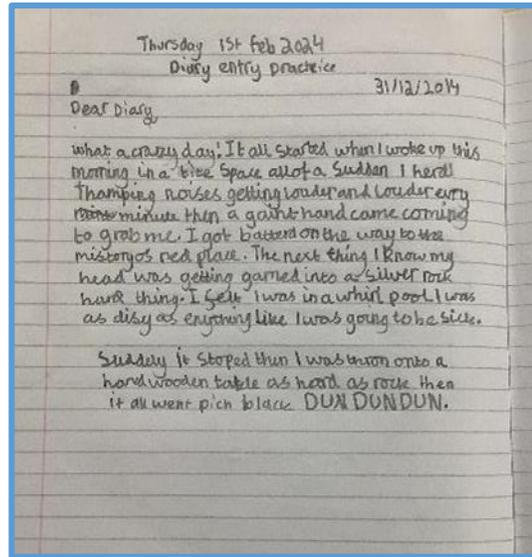 Thursday 1st Feb 2024
Diary entry practeice
31/12/2014
Dear Diary
what a crazy day! It all started when I woke up this
morning in a tite space all of a sudden I herd
Thamping noises getting louder and louder evry
minute then a gaint hand came coming
to grab me. I got batterd on the way to the
misteryos red place. The next thing I know my
head was getting gamed into a silver rock
hard thing. I felt I was in a whirl pool I was
as disy as enything like I was going to be sick.
Suddely it stoped then I was thron onto a
hard wooden table as hard as rock then
it all went pich black DUN DUN DUN.